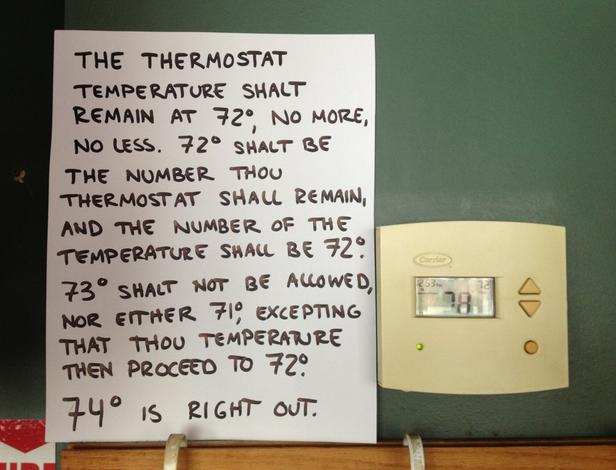 THE THERMOSTAT
TEMPERATURE SHALT
REMAIN AT 72°, NO MORE,
NO LESS. 72° SHALT BE
THE NUMBER THOU
THERMOSTAT SHALL REMAIN,
AND THE NUMBER OF THE
TEMPERATURE SHALL BE 72°.
73° SHALT NOT BE ALLOWED,
NOR EITHER 71°, EXCEPTING
THAT THOU TEMPERATURE
THEN PROCEED TO 72°.
74° IS RIGHT OUT.
Carrier
72
78